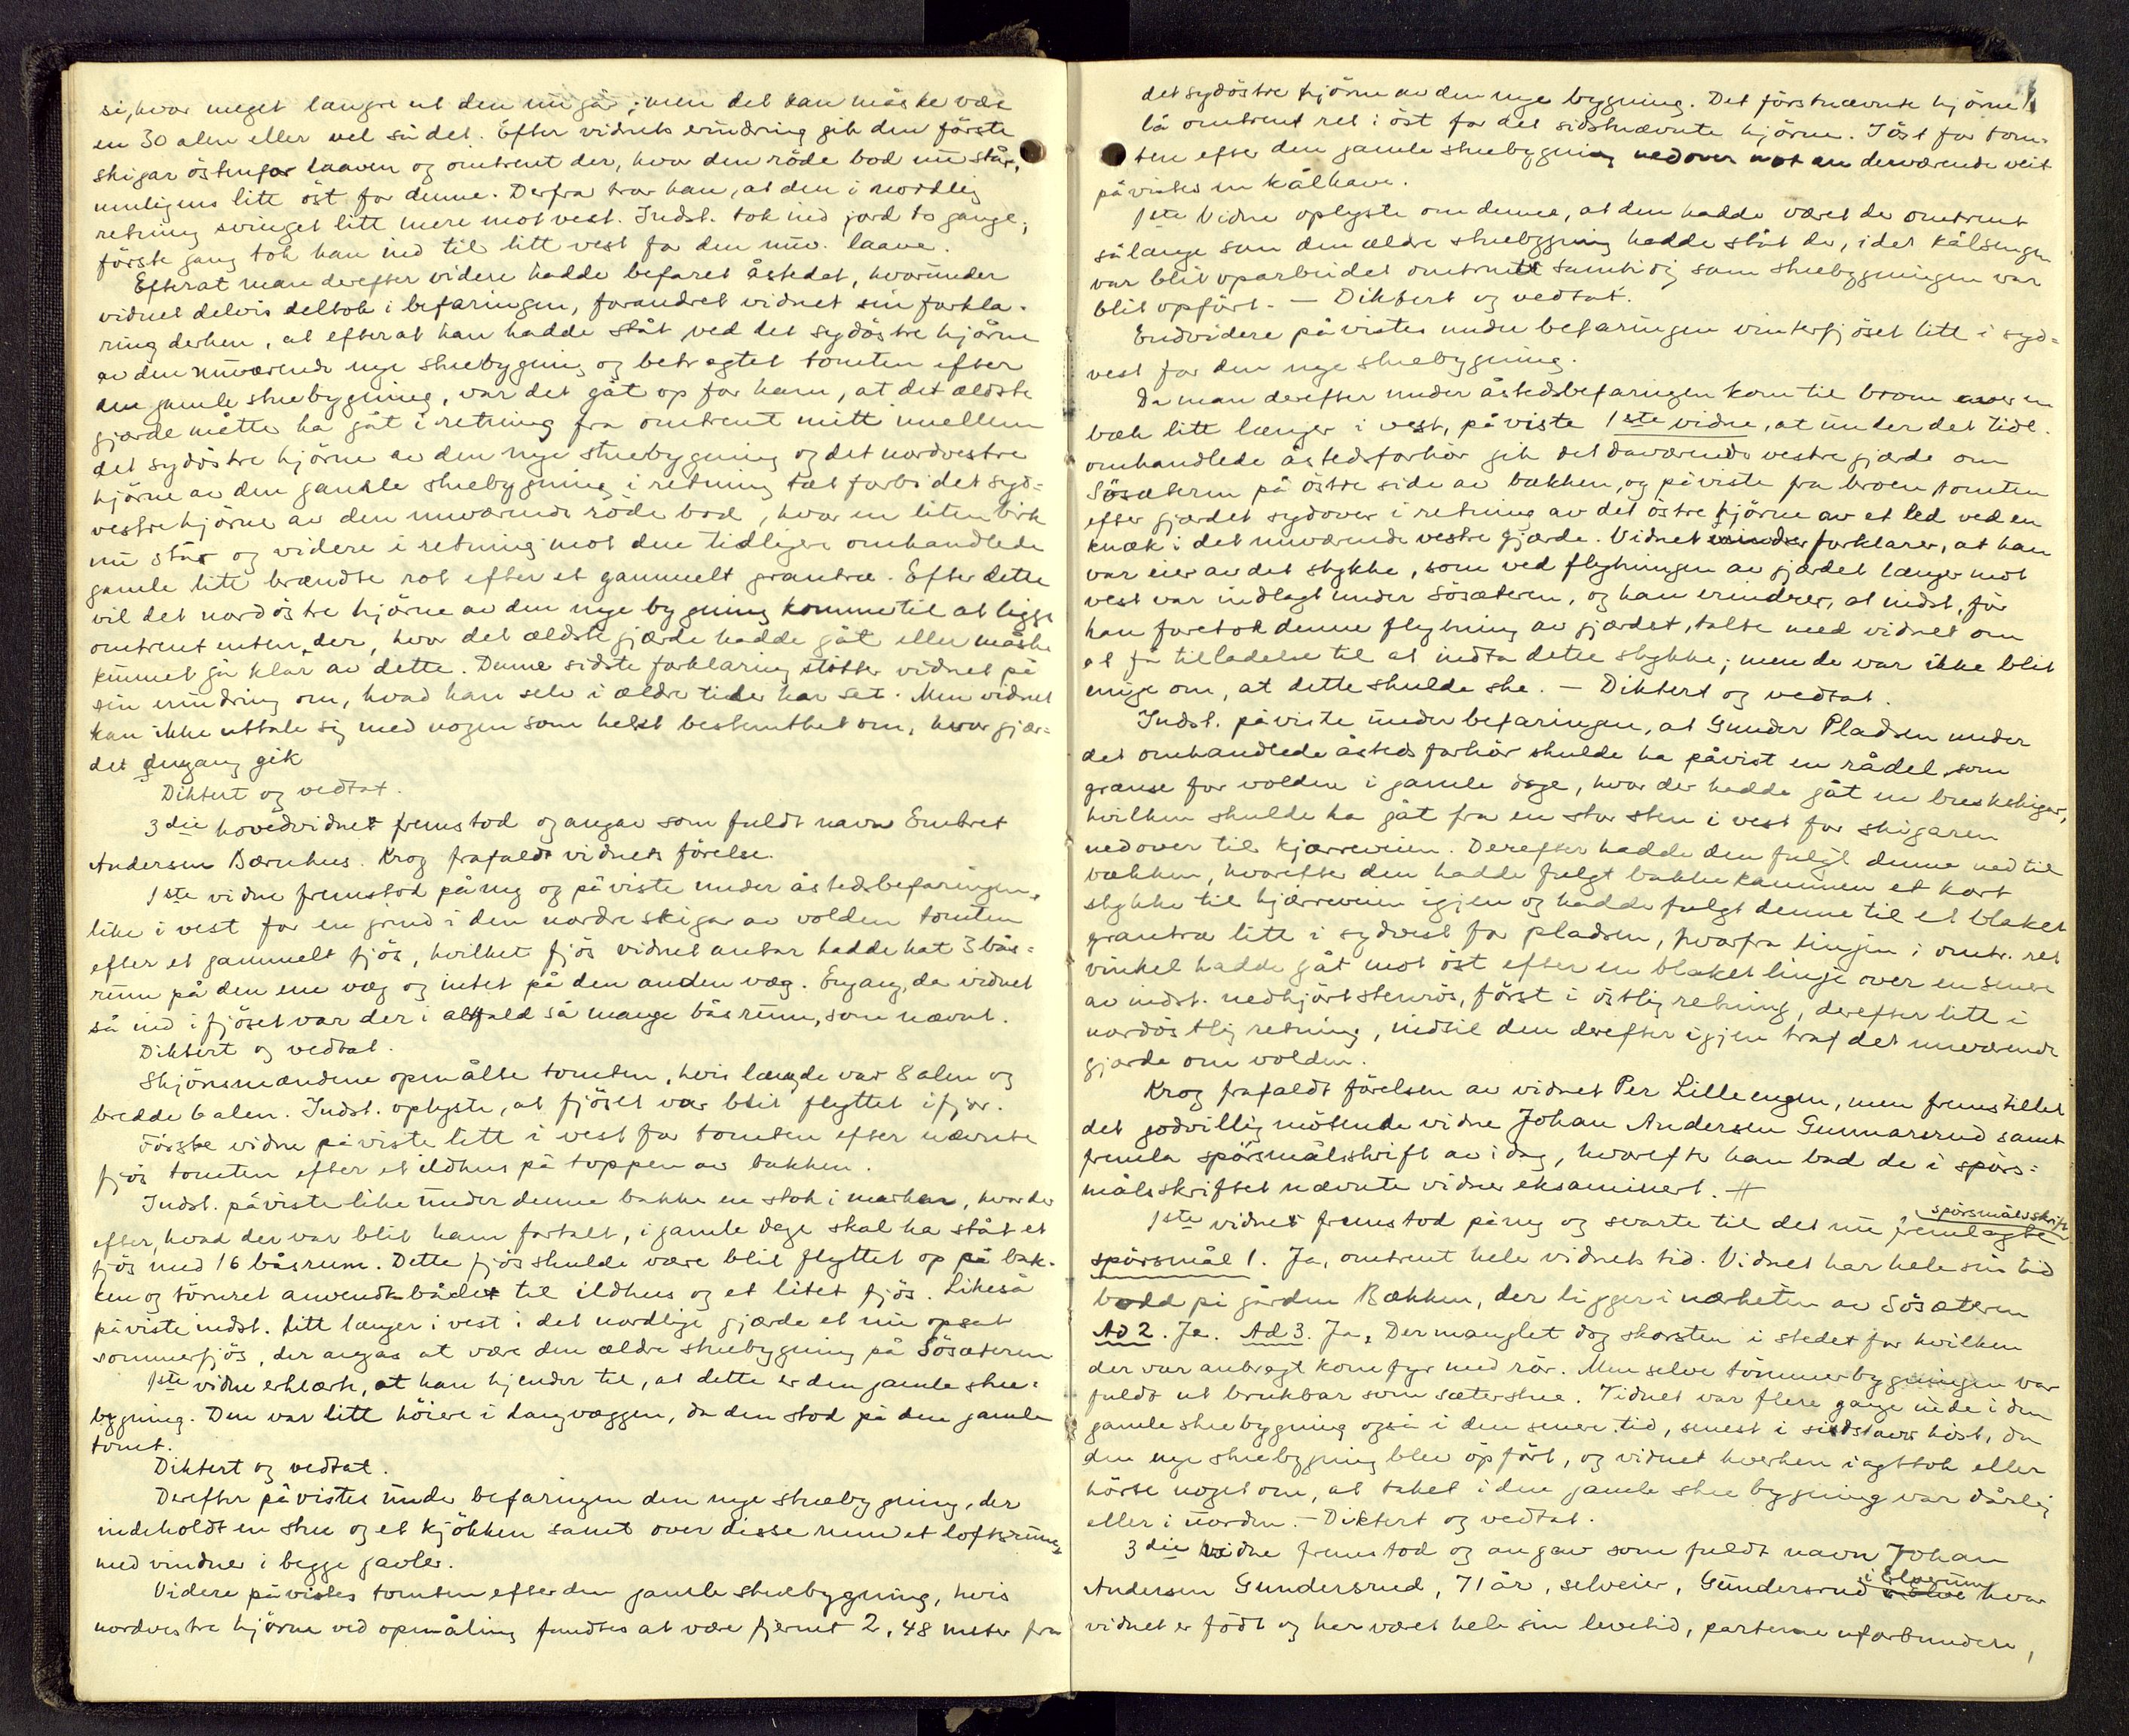 si, hvor meget længre ut den nu går; men det kan måske være
en 30 alen eller vel så det. Efter vidnets erindring gik den første
skigar østenfor laaven og omtrent der, hvor den røde bod nu står,
muligens litt øst for denne. Derfra tror han, at den i nordlig
retning svinget litt mere mot vest. Indst. tok ind jord to gange;
første gang tok han ind til litt vest for den nuv. laave.
Efterat man derefter videre hadde befaret åstedet, hvorunder
vidnet delvis deltok i befaringen, forandret vidnet sin forkla-
ring derhen, at efterat han hadde ståt ved det sydøstre hjørne
av den nuværende nye stuebygning og betragtet tomten efter
den gamle stuebygning, var det gåt op for ham, at det ældste
gjærde måtte ha gåt i retning fra omtrent mitt imellem
det sydøstre hjørne av den nye stuebygning og det nordvestre
hjørne av den gamle stuebygning i retning tæt forbi det syd-
vestre hjørne av den nuværende røde bod, hvor en liten birk
nu står og videre i retning mot den tidligere omhandlede
gamle litt brændte rot efter et gammelt grantræ. Efter dette
vil det nordøstre hjørne av den nye bygning komme til at ligge
omtrent enten der, hvor det ældste gjærde hadde gåt eller måske
kunnet gå klar av dette. Denne sidste forklaring støtter vidnet på
sin erindring om, hvad han selv i ældre tider har set. Men vidnet
kan ikke uttale sig med nogen som helst bestemthet om, hvor gjær-
det engang gik
Diktert og vedtat.
3die hovedvidnet fremstod og angav som fuldt navn Embret
Andersen Bærnhus. Krog frafaldt vidnets førelse.
1ste vidne fremstod påny og påviste under åstedsbefaringen,
like i vest for en grind i den nordre skigar av volden tomten
efter et gammelt fjøs, hvilket fjøs vidnet antar hadde hat 3 bås-
rum på den ene væg og intet på den anden væg. Engang, da vidnet
så ind i fjøset var der i alfald så mange båsrum, som nævnt.
Diktert og vedtat.
Skjønsmændene opmålte tomten, hvis længde var 8 alen og
bredde 6 alen. Indst. oplyste, at fjøset var blit flyttet ifjor.
Første vidne påviste litt i vest for tomten efter nævnte
fjøs tomten efter et ildhus på toppen av bakken.
Indst. påviste like under denne bakke en stok i marken, hvor der
efter, hvad der var blit ham fortalt, i gamle dage skal ha ståt et
fjøs med 16 båsrum. Dette fjøs skulde være blit flyttet op på bak-
ken og tømret anvendt både til ildhus og et litet fjøs. Likeså
påviste indst. litt længer i vest i det nordlige gjærde et nu opsat
sommerfjøs, der angås at være den ældre stuebygning på Søsæteren
1ste vidne erklærte, at han kjender til, at dette er den gamle stue-
bygning. Den var litt høiere i langvæggen, da den stod på den gamle
tomt.
Diktert og vedtat.
Derefter påvistes under befaringen den nye stuebygning, der
indeholdt en stue og et kjøkken samt over disse rum et loftsrum
med vinduer i begge gavler.
Videre påvistes tomten efter den gamle stuebygning, hvis
nordvestre hjørne ved opmåling fandtes at være fjernet 2,48 meter fra
det sydøstre hjørne av den nye bygning. Det førstnævnte hjørne
lå omtrent ret i øst for det sidstnævnte hjørne. I øst for tom-
ten efter den gamle stuebygning nedover mot en derværende veit
påvistes en kålhave.
1ste Vidne oplyste om denne, at den hadde været der omtrent
sålænge som den ældre stuebygning hadde ståt der, idet kålsengen
var blit oparbeidet omtrent samtidig som stuebygningen var
blit opført. — Diktert og vedtat.
Endvidere påvistes under befaringen vinterfjøset litt i syd-
vest for den nye stuebygning.
Da man derefter under åstedsbefaringen kom til broen over en
bæk litt længer i vest, påviste 1ste vidne, at under det tidl.
omhandlede åstedsforhør gik det daværende vestre gjærde om
Søsæteren på østre side av bækken, og påviste fra broen tomten
efter gjærdet sydover i retning av det østre hjørne av et led ved en
knæk i det nuværende vestre gjærde. Vidnet forklarer, at han
var eier av det stykke, som ved flytningen av gjærdet længer mot
vest var indlagt under Søsæteren, og han erindrer, at indst., før
han foretok denne flytning av gjærdet, talte med vidnet om
at få tilladelse til at indta dette stykke; men de var ikke blit
enige om, at dette skulde ske. — Diktert og vedtat.
Indst. påviste under befaringen, at Gunder Pladsen under
det omhandlede åstedsforhør skulde ha påvist en rådel som
grænse for volden i gamle dage, hvor der hadde gåt en breskskigar,
hvilken skulde ha gåt fra en stor sten i vest for skigaren
nedover til kjærreveien. Derefter hadde den fulgt denne ned til
bækken, hvorefter den hadde fulgt bakkekammen et kort
stykke til kjærreveien igjen og hadde fulgt denne til et blaket
grantræ litt i sydvest for pladsen, hvorfra linjen i omtr. ret
vinkel hadde gåt mot øst efter en blaket linje over en senere
av indst. nedkjørt stenrøs, først i østlig retning, derefter litt i
nordøstlig retning, indtil den derefter igjen traf det nuværende
gjærde om volden.
Krog frafaldt førelsen av vidnet Per Lilleengen, men fremstillet
det godvillig møtende vidne Johan Andersen Gunnarsrud samt
fremla spørsmålsskrift av idag, hvorefter han bad de i spørs-
målsskriftet nævnte vidner eksaminert. #
1ste vidnet fremstod påny og svarte til det nu fremlagte spørsmålsskrift
spørsmål 1. Ja, omtrent hele vidnets tid. Vidnet har hele sin tid
bodd på gården Bækken, der ligger i nærheten av Søsæteren
Ad 2. Ja. Ad 3. Ja, Der manglet dog skorsten i stedet for hvilken
der var anbragt komfyr med rør. Men selve tømmerbygningen var
fuldt ut brukbar som sæterstue. Vidnet var flere gange inde i den
gamle stuebygning også i den senere tid, senest i sidstavv høst, da
den nye stuebygning blev opført, og vidnet hverken iagttok eller
hørte noget om, at taket i den gamle stuebygning var dårlig
eller i uorden. — Diktert og vedtat.
3die vidne fremstod og angav som fuldt navn Johan
Andersen Gundersrud, 71 år, selveier, Gundersrud i Elverum hvor
vidnet er født og har været hele sin levetid, parterne uforbunden,